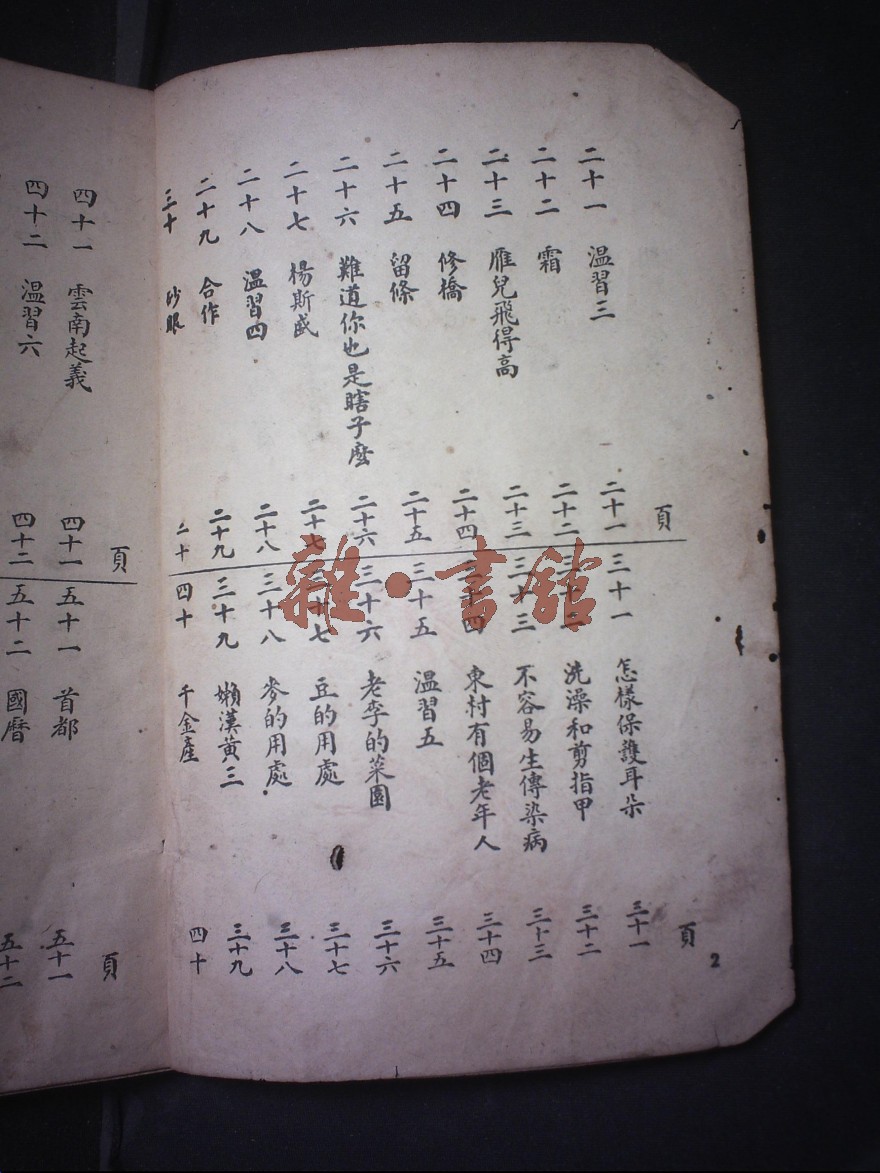 頁
二十一 溫習三 二十一
二十二 霜 二十二
二十三 雁兒飛得高 二十三
二十四 修橋 二十四
二十五 留條 二十五
二十六 難道你也是瞎子麼 二十六
二十七 楊斯盛 二十七
二十八 溫習四 二十八
二十九 合作 二十九
三十 砂眼 三十
頁
三十一 怎樣保護耳朵 三十一
三十二 洗澡和剪指甲 三十二
三十三 不容易生傳染病 三十三
三十四 東村有個老年人 三十四
三十五 溫習五 三十五
三十六 老李的菜園 三十六
三十七 豆的用處 三十七
三十八 麥的用處 三十八
三十九 懶漢黃三 三十九
四十 千金產 四十
2
頁
四十一 雲南起義 四十一
四十二 溫習六 四十二
頁
五十一 首都 五十一
五十二 國曆 五十二
雜·書館